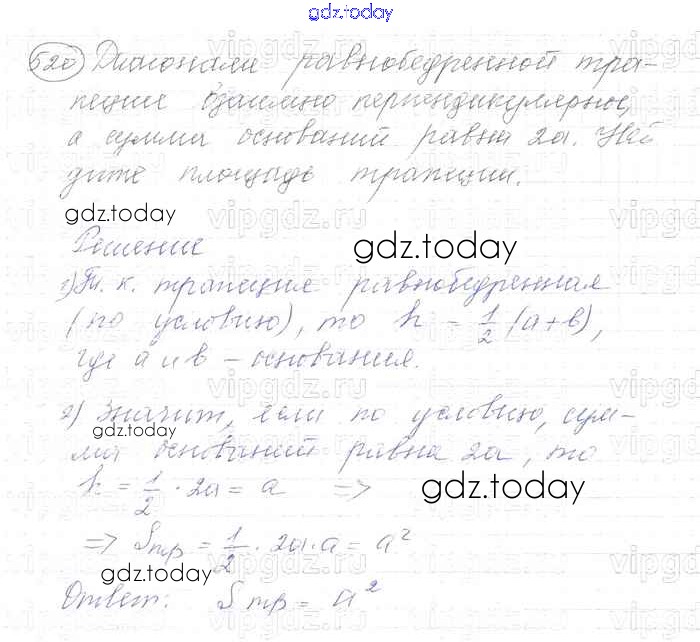 gdz.today
520 Диагонали равнобедренной тра-
пеции взаимно перпендикулярны,
а сумма оснований равна 2a. Най
дите площадь трапеции.
gdz.today
Решение
gdz.today
1) Т. к. трапеция равнобедренная
(по условию), то h = 1/2 (a+b),
где a и b – основания.
2) Значит, если по условию, сум-
gdz.today
ма оснований равна 2a, то
h = 1/2 · 2a = a =>
gdz.today
=> Sтр = 1/2 · 2a · a = a²
gdz.today
Ответ: Sтр = a²